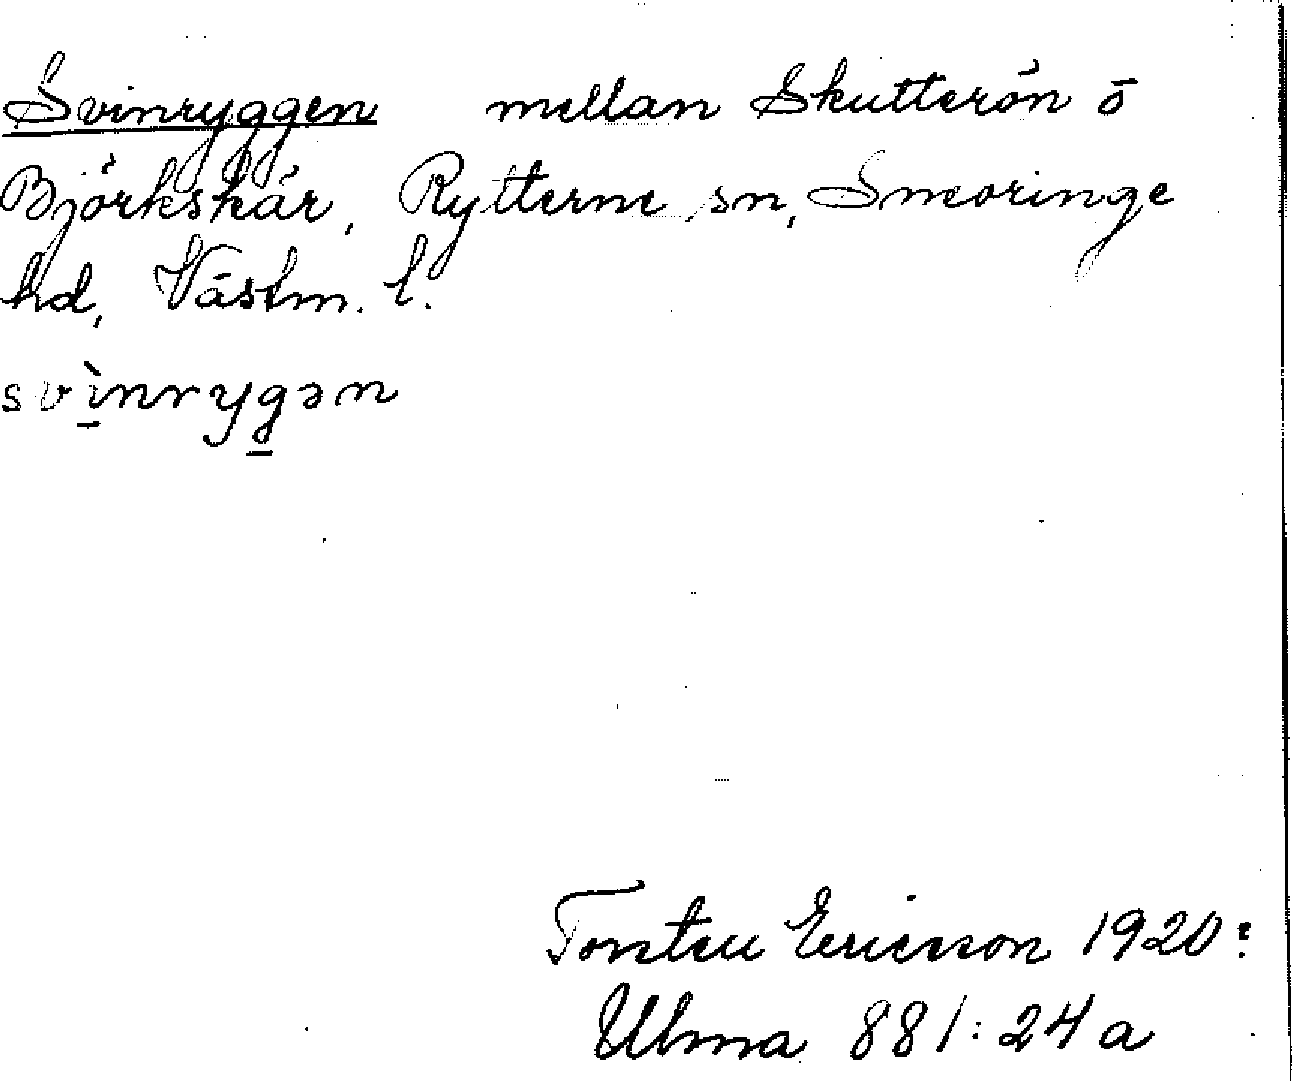 Svinryggen mellan Skutterön ö
Björkskär, Rytterne sn, Snevringe
hd, Västm. l.
svìnrygən
Torsten Ericsson 1920:
Ulma 881:24a